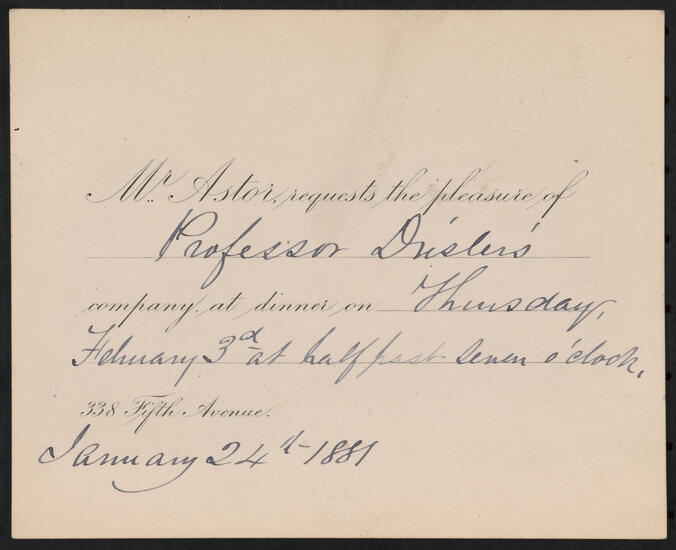 Mr. Astor, requests the pleasure of
Professor Drisler's
company, at dinner on Thursday,
February 3d at half past seven o'clock,
338 Fifth Avenue.
January 24th 1881